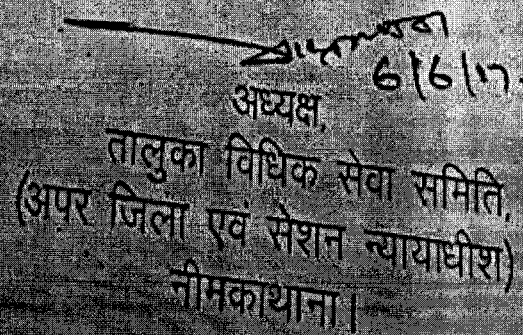 6/6/17
अध्यक्ष,
तालुका विधिक सेवा समिति,
(अपर जिला एवं सेशन न्यायाधीश)
नीमकाथाना।